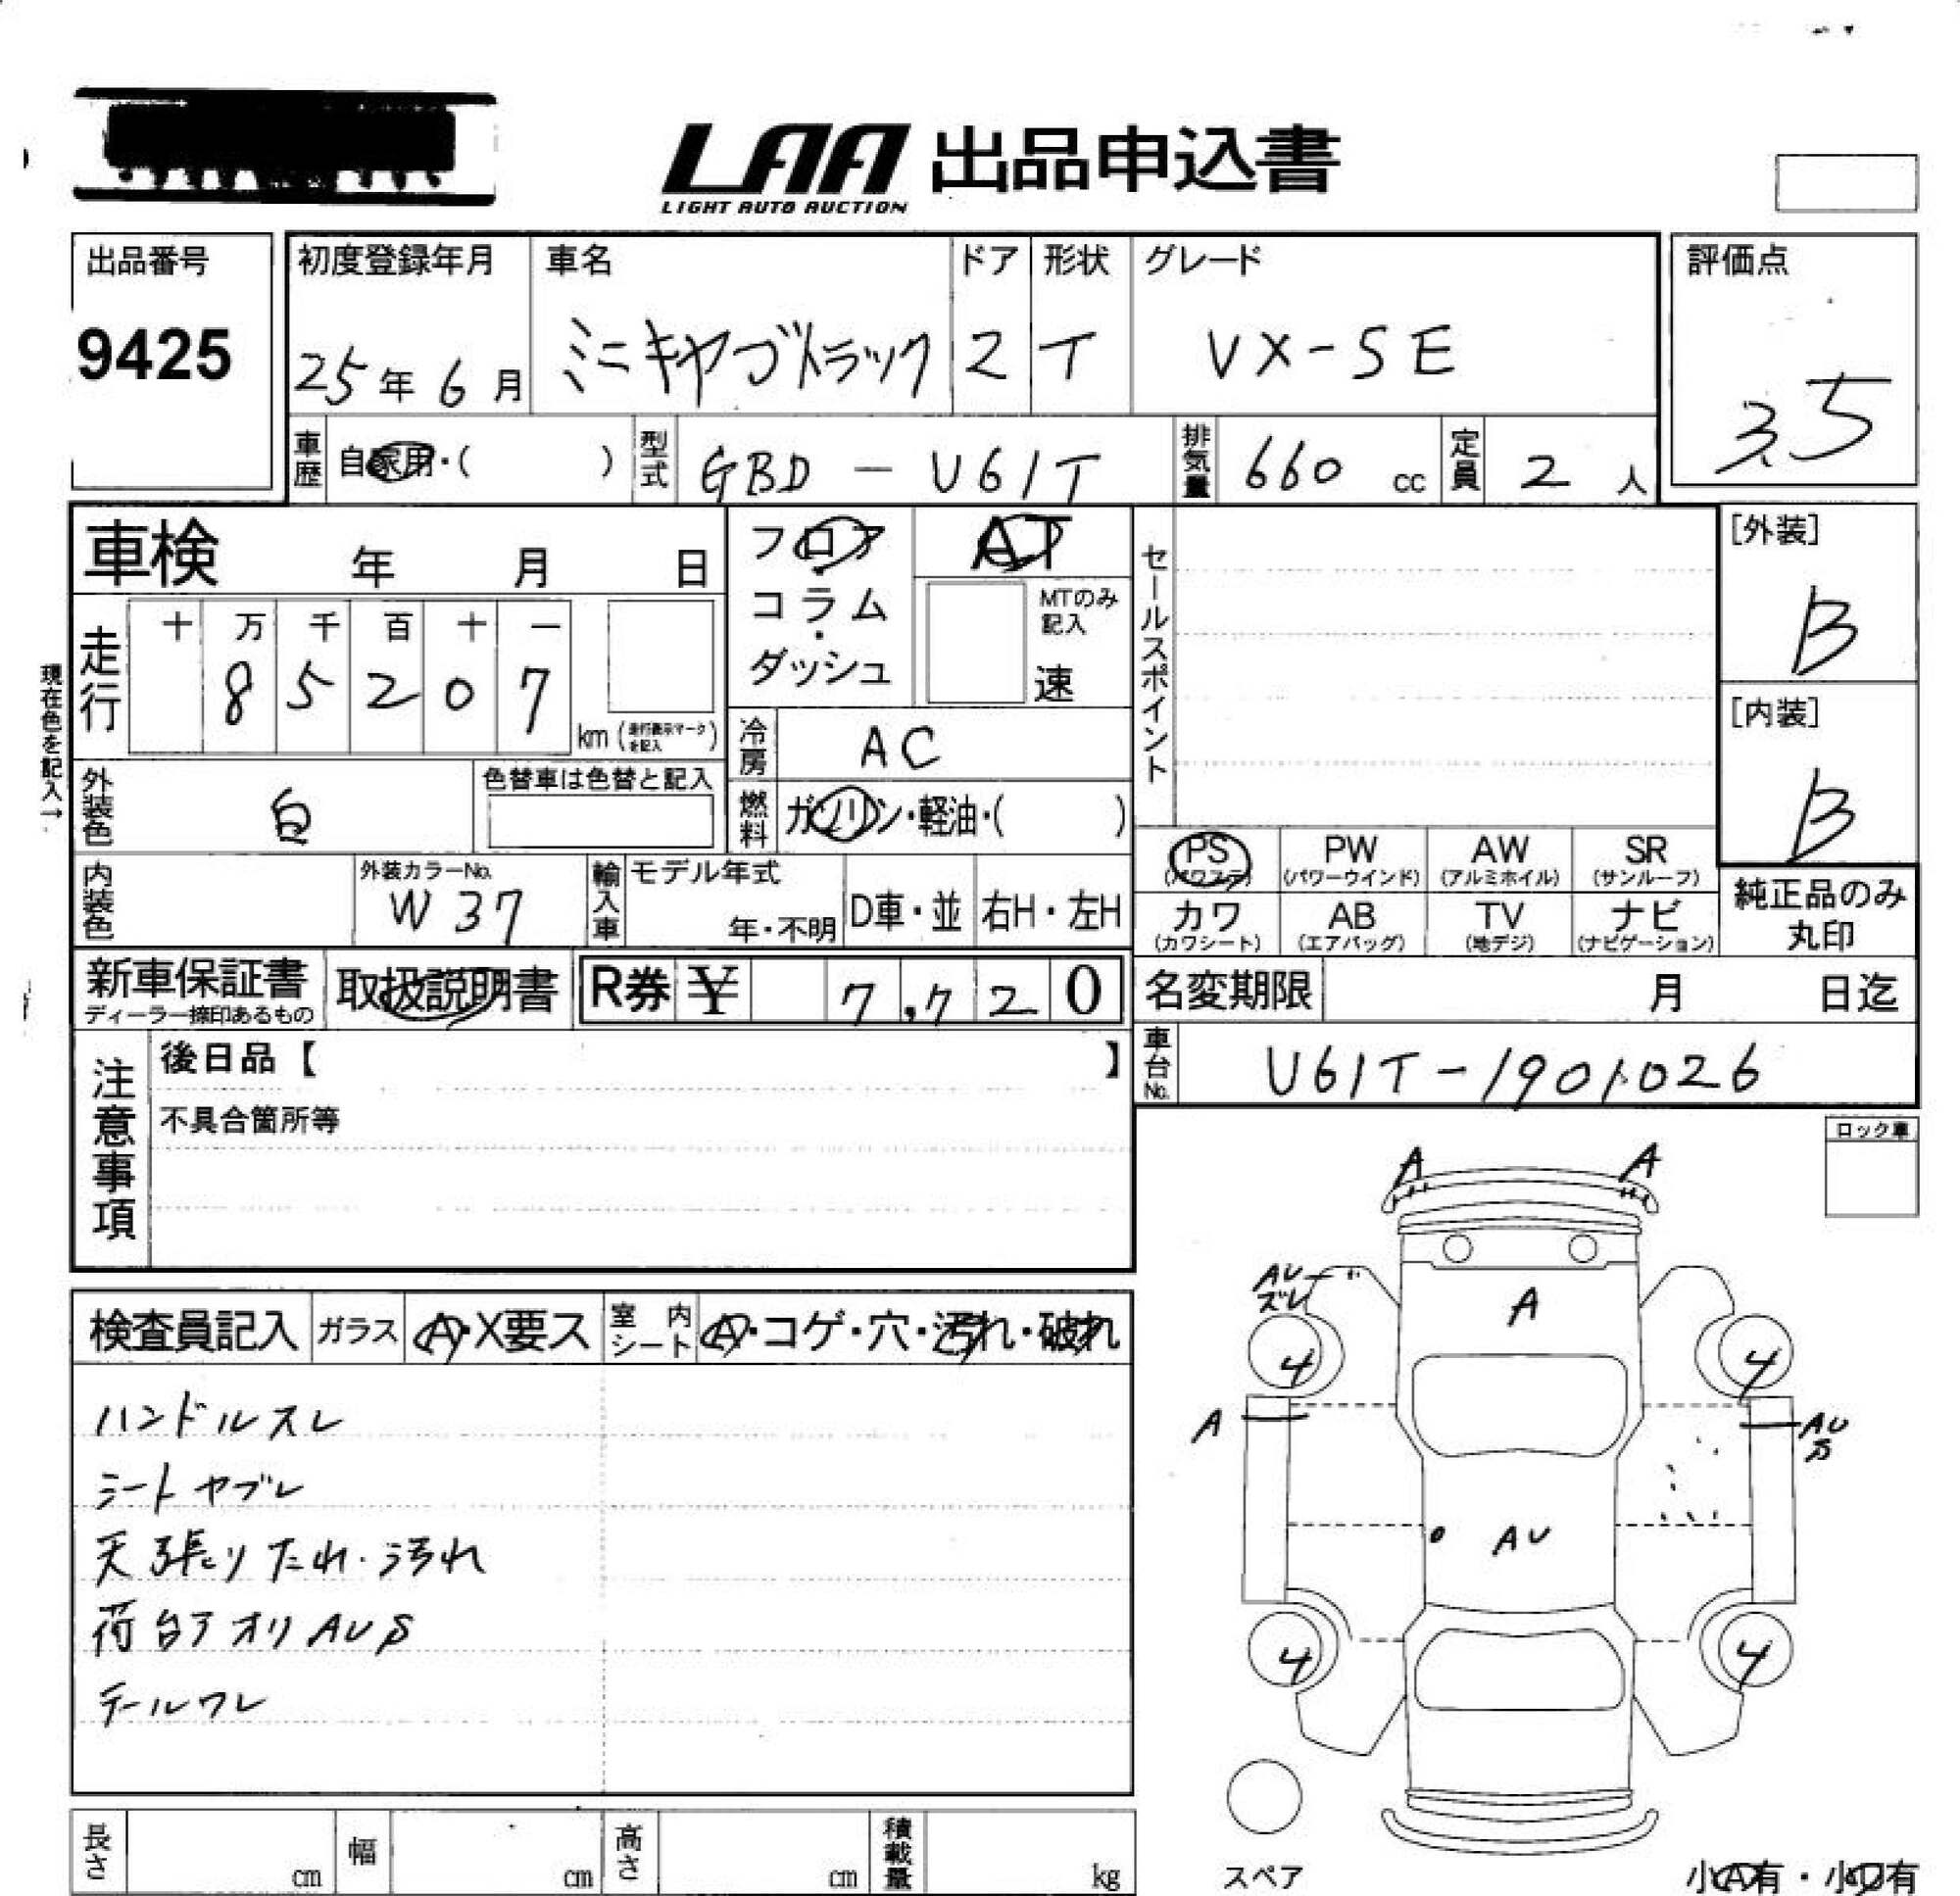 LAA 出品申込書
LIGHT AUTO AUCTION
出品番号
9425
初度登録年月
25年6月
車名
ミニキヤブトラック
ドア
2
形状
T
グレード
VX-SE
評価点
3.5
車歴
自家用・( )
型式
GBD-U61T
排気量
660 cc
定員
2 人
車検 年 月 日
フロア・コラム・ダッシュ
AT
MTのみ記入
速
セールスポイント
[外装]
B
[内装]
B
現在色を記入→
走行
十 万 千 百 十 一
8 5 2 0 7
km (走行表示マークを記入)
冷房
AC
外装色
白
色替車は色替と記入
燃料
ガソリン・軽油・( )
PS (パワステ)
PW (パワーウインド)
AW (アルミホイル)
SR (サンルーフ)
内装色
外装カラーNo.
W37
輸入車
モデル年式
年・不明
D車・並
右H・左H
カワ (カワシート)
AB (エアバッグ)
TV (地デジ)
ナビ (ナビゲーション)
純正品のみ丸印
新車保証書
ディーラー捺印あるもの
取扱説明書
R券 ¥ 7,720
名変期限 月 日迄
車台No.
U61T-1901026
注意事項
後日品【 】
不具合箇所等
ロック車
検査員記入
ガラス
A・X要ス
室内シート
A・コゲ・穴・汚れ・破れ
ハンドルスレ
シートヤブレ
天張りたれ・汚れ
荷台アオリAUS
テールワレ
A A
AU
ズレ
A
4 4
A
AU
S
AU
4 4
スペア
小A有・小U有
長さ cm
幅 cm
高さ cm
積載量 kg